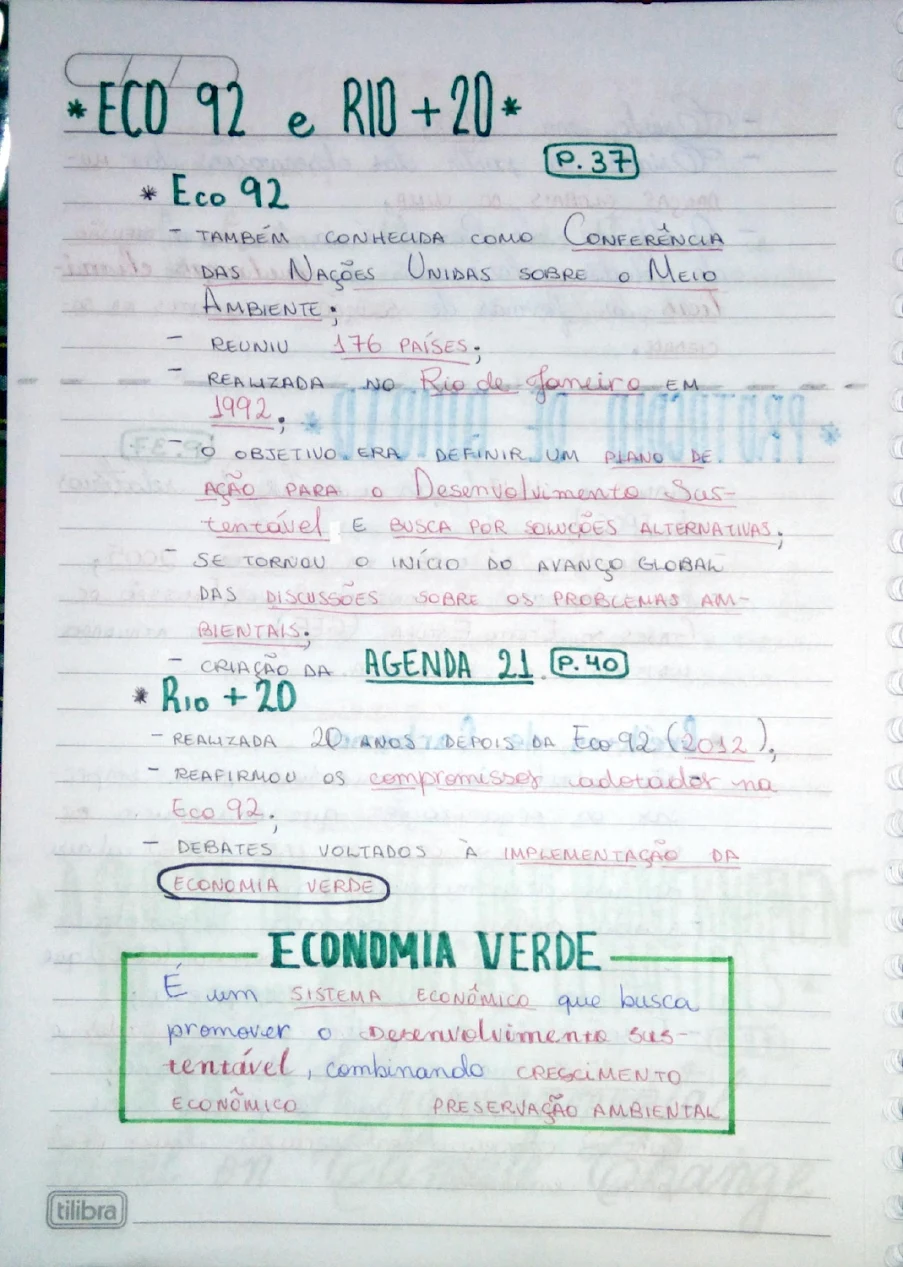 * ECO 92 e RIO + 20 *
P. 37
* Eco 92
- TAMBÉM CONHECIDA COMO CONFERÊNCIA
DAS NAÇÕES UNIDAS SOBRE O MEIO
AMBIENTE;
- REUNIU 176 PAÍSES;
- REALIZADA NO Rio de Janeiro EM
1992;
- O OBJETIVO ERA DEFINIR UM PLANO DE
AÇÃO PARA O Desenvolvimento Sus-
tentável E BUSCA POR SOLUÇÕES ALTERNATIVAS;
- SE TORNOU O INÍCIO DO AVANÇO GLOBAL
DAS DISCUSSÕES SOBRE OS PROBLEMAS AM-
BIENTAIS;
- CRIAÇÃO DA AGENDA 21. P. 40
* Rio + 20
- REALIZADA 20 ANOS DEPOIS DA Eco 92 (2012);
- REAFIRMOU OS compromissos adotados na
Eco 92;
- DEBATES VOLTADOS À IMPLEMENTAÇÃO DA
ECONOMIA VERDE
ECONOMIA VERDE
É um SISTEMA ECONÔMICO que busca
promover o Desenvolvimento sus-
tentável, combinando CRESCIMENTO
ECONÔMICO PRESERVAÇÃO AMBIENTAL
tilibra